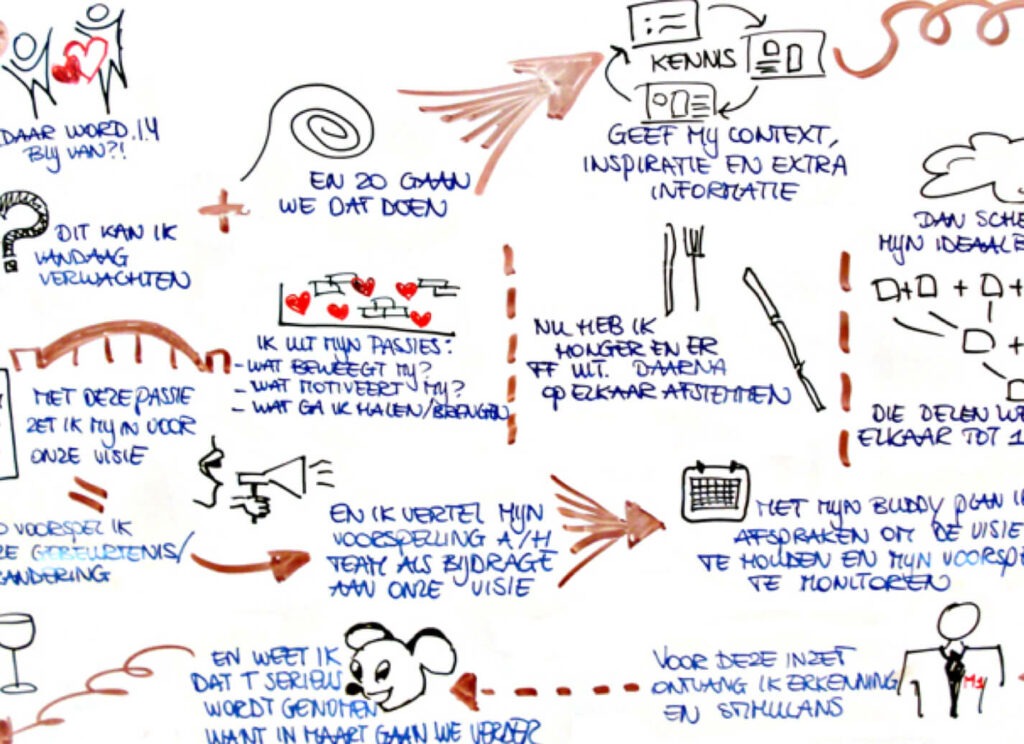 DAAR WORD IK
BLIJ VAN?!
EN ZO GAAN
WE DAT DOEN
KENNIS
GEEF MIJ CONTEXT,
INSPIRATIE EN EXTRA
INFORMATIE
DIT KAN IK
VANDAAG
VERWACHTEN
DAN SCHE
MIJN IDEAALE
IK UIT MIJN PASSIES:
- WAT BEWEEGT MIJ?
- WAT MOTIVEERT MIJ?
- WAT GA IK HALEN/BRENGEN
NU HEB IK
HONGER EN ER
FF UIT. DAARNA
OP ELKAAR AFSTEMMEN
DIE DELEN WE
ELKAAR TOT 1
MET DEZE PASSIE
ZET IK MIJ IN VOOR
ONZE VISIE
O VOORSPEL IK
ZE GEBEURTENIS/
ANDERING
EN IK VERTEL MIJN
VOORSPELLING A/H
TEAM ALS BIJDRAGE
AAN ONZE VISIE
MET MIJN BUDDY PLAN IK
AFSPRAKEN OM DE VISIE
TE HOUDEN EN MIJN VOORSPE
TE MONITOREN
VOOR DEZE INZET
ONTVANG IK ERKENNING
EN STIMULANS
M1
EN WEET IK
DAT T SERIEUS
WORDT GENOMEN
WANT IN MAART GAAN WE VERDER